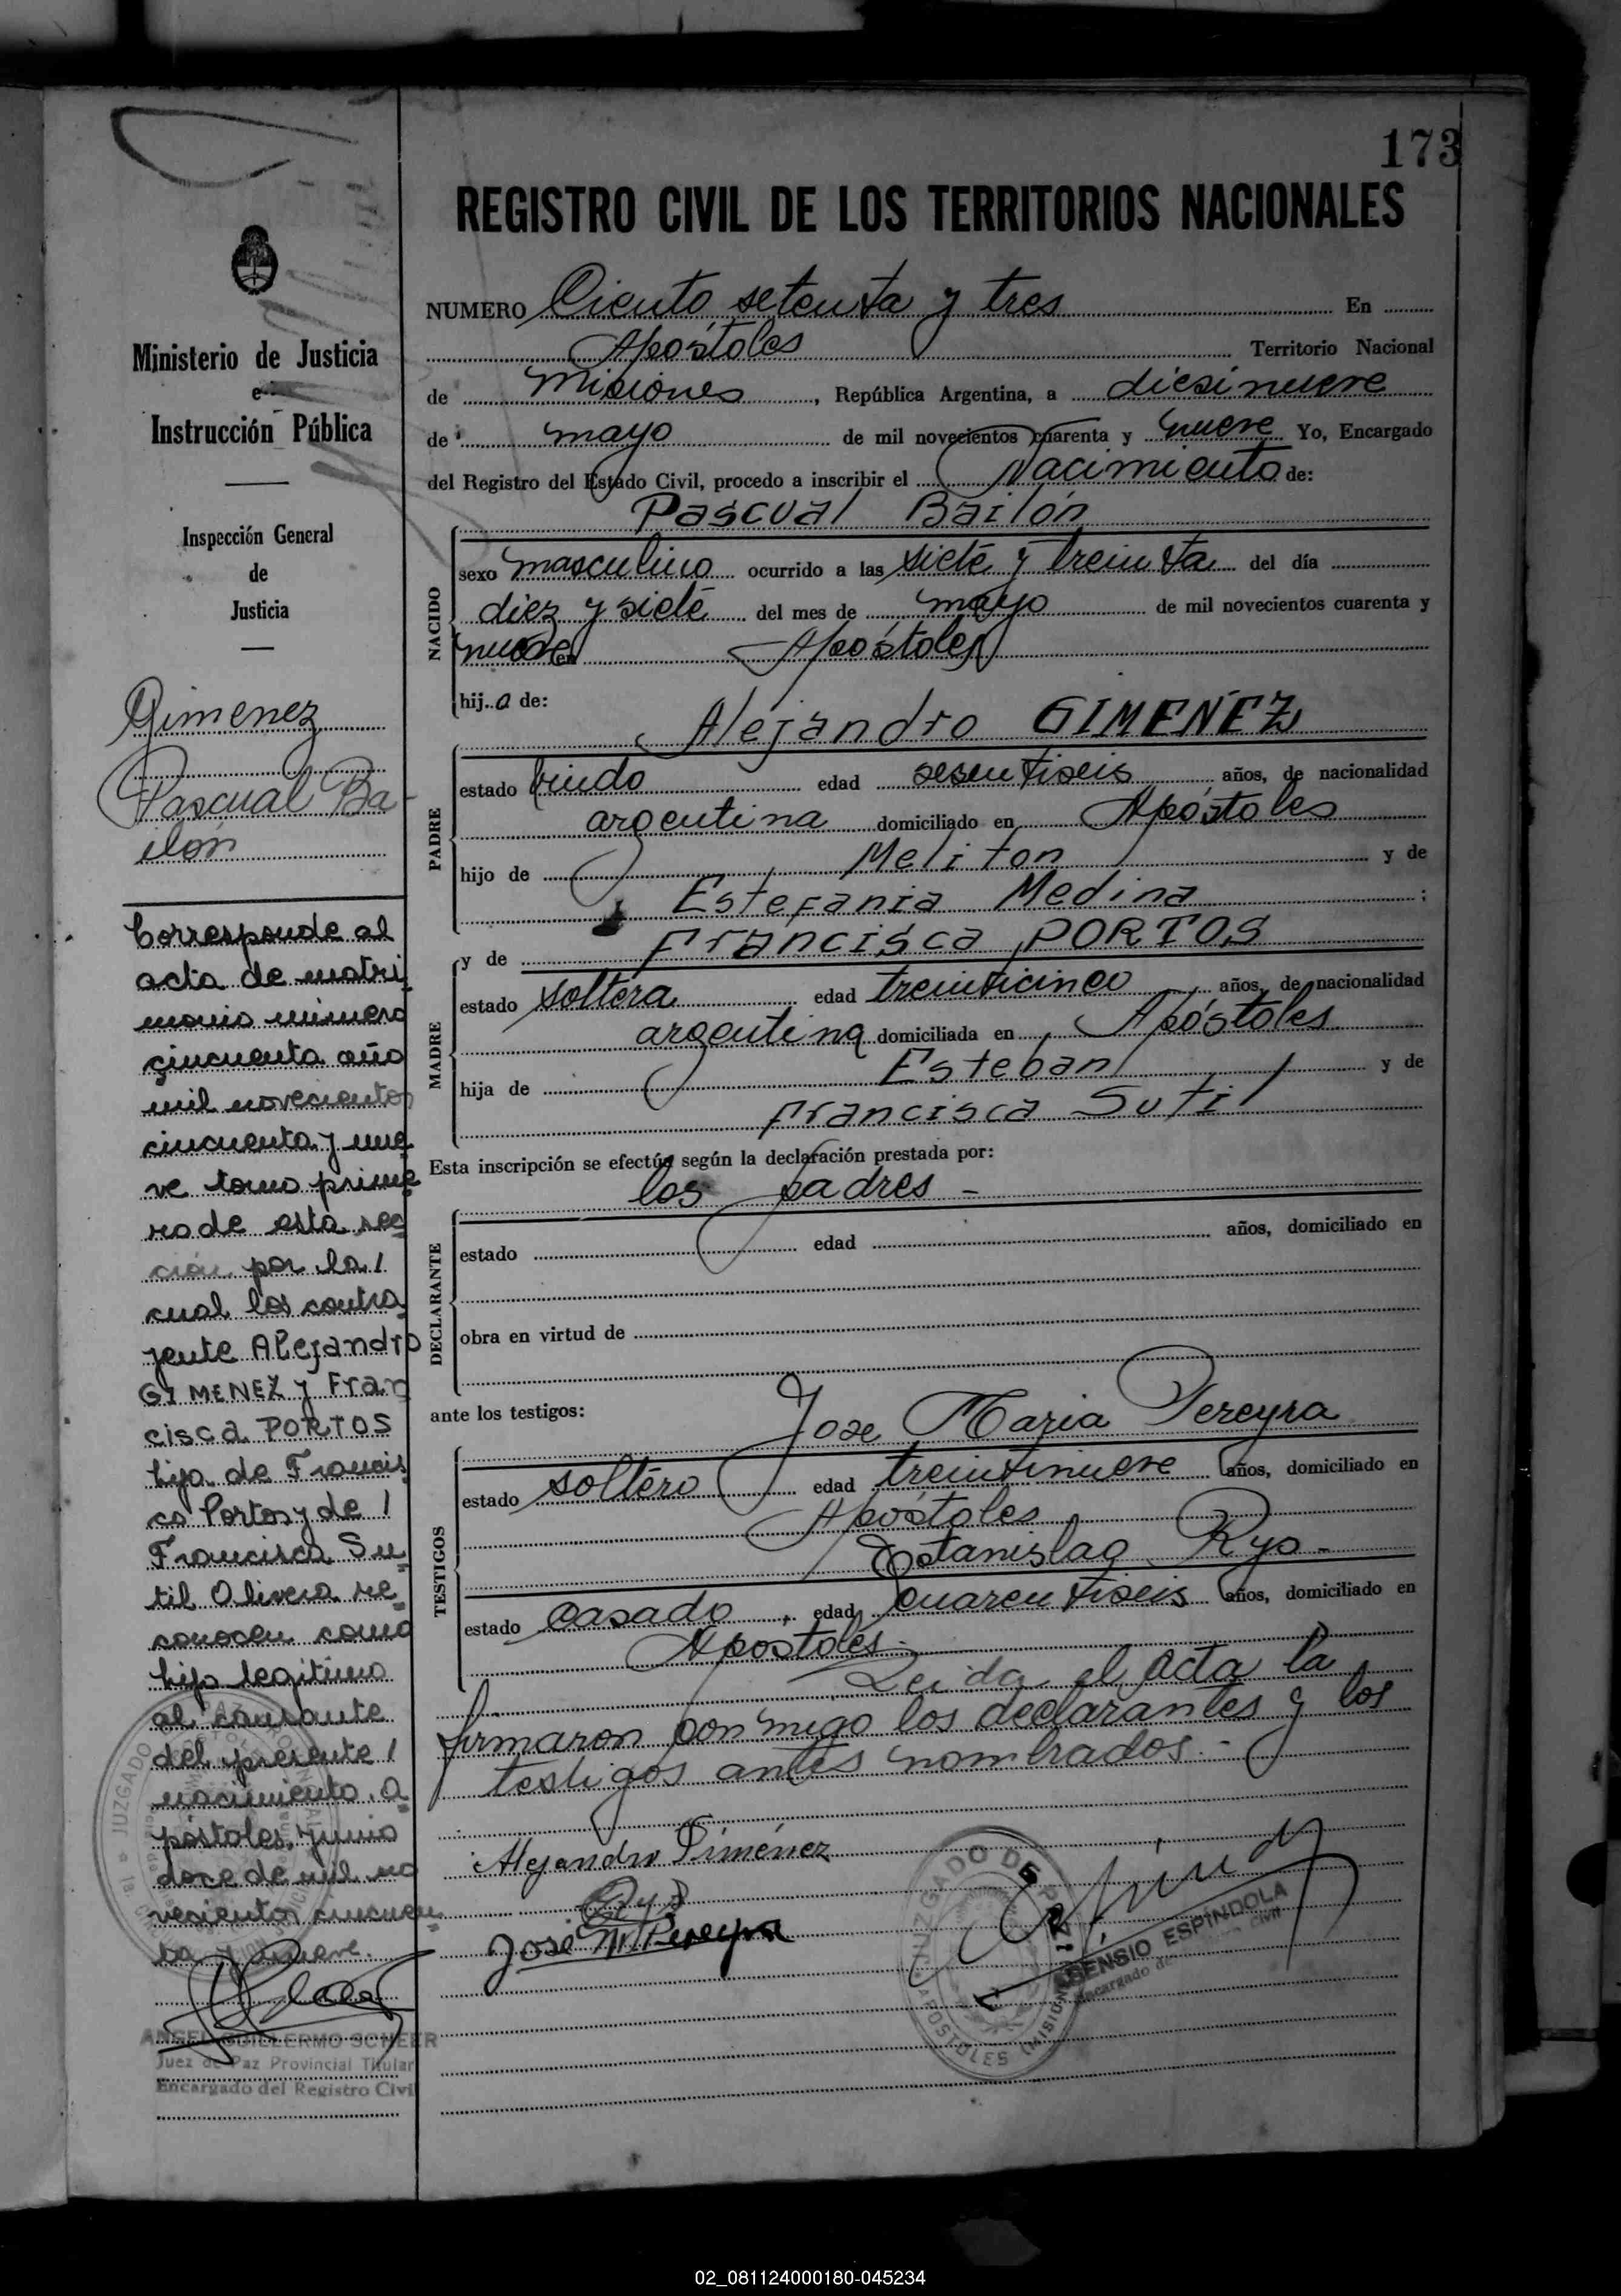 173
REGISTRO CIVIL DE LOS TERRITORIOS NACIONALES
Ministerio de Justicia
e
Instrucción Pública
Inspección General
de
Justicia
Gimenez
Pascual Ba
ilón
Corresponde al
acta de matri
monio número
cincuenta año
mil novecientos
cincuenta y nue
ve tomo prime
ro de esta sec
ción por la /
cual los contra
yente Alejandro
GIMENEZ y Fran
cisca PORTOS
hija de Francis
co Portos y de /
Francisca Su
til Olivera re
conocen como
hijo legítimo
al causante
del presente /
nacimiento. A
póstoles, junio
doce de mil no
vecientos cincuen
ta y nueve.
ANGEL GUILLERMO SCHEER
Juez de Paz Provincial Titular
Encargado del Registro Civil
NUMERO Ciento setenta y tres En
Apóstoles Territorio Nacional
de Misiones, República Argentina, a diesinueve
de mayo de mil novecientos cuarenta y nueve Yo, Encargado
del Registro del Estado Civil, procedo a inscribir el Nacimiento de:
Pascual Bailón
NACIDO
sexo masculino ocurrido a las siete y treinta del día
diez y siete del mes de mayo de mil novecientos cuarenta y
nueve en Apóstoles
hij.o de:
Alejandro GIMENEZ
PADRE
estado viudo edad sesentiseis años, de nacionalidad
argentina domiciliado en Apóstoles
hijo de Meliton y de
Estefania Medina ;
y de Francisca PORTOS
MADRE
estado soltera edad treinticinco años, de nacionalidad
argentina domiciliada en Apóstoles
hija de Esteban y de
Francisca Sutil
Esta inscripción se efectúa según la declaración prestada por:
los padres -
DECLARANTE
estado edad años, domiciliado en
obra en virtud de
ante los testigos: Jose Maria Pereyra
TESTIGOS
estado soltero edad treintinueve años, domiciliado en
Apóstoles
Estanislao Ryo -
estado casado, edad cuarentiseis años, domiciliado en
Apóstoles.-
Leida el acta la
firmaron conmigo los declarantes y los
testigos antes nombrados.-
Alejandro Giménez
José M. Pereyra
JUZGADO DE PAZ
APOSTOLES (MISIONES)
ASENSIO ESPINDOLA
Encargado del Registro Civil
02_081124000180-045234